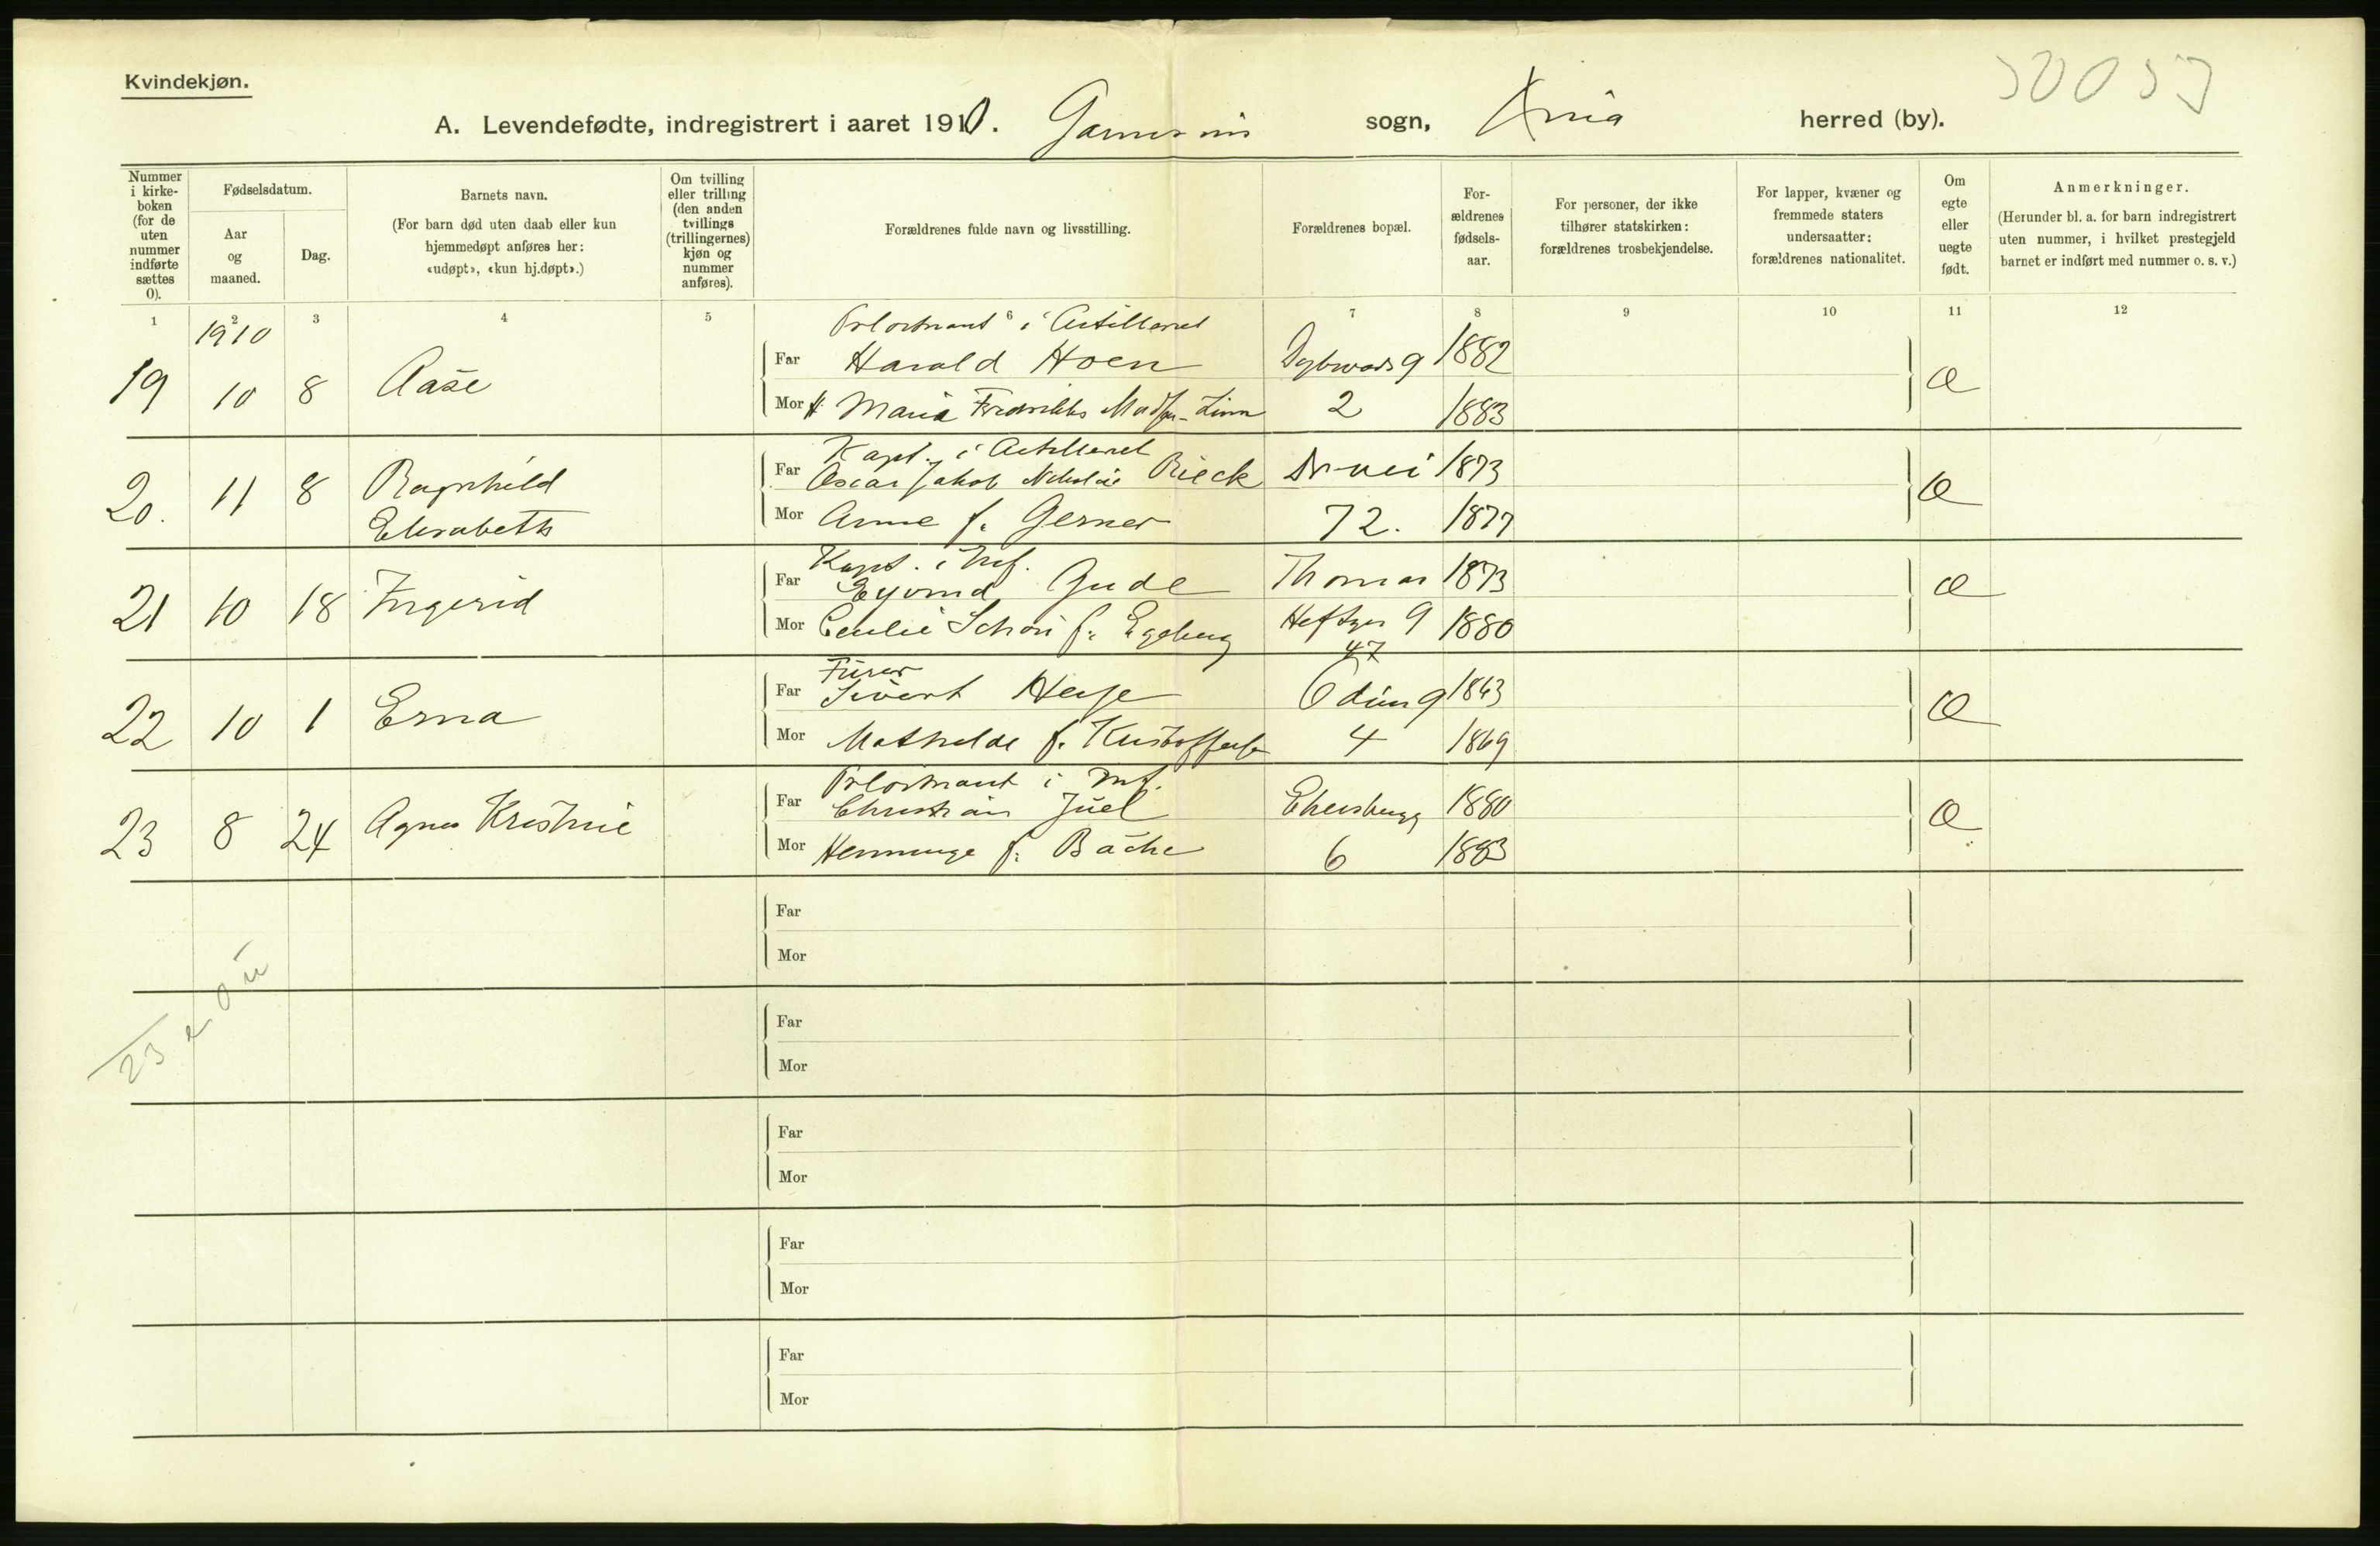 Kvindekjøn.
A. Levendefødte, indregistrert i aaret 1910. sogn, Xnia herred (by).
Nummer i kirkeboken (for de uten nummer indførte sættes 0).
Fødselsdatum.
Aar og maaned.
Dag.
Barnets navn.
(For barn død uten daab eller kun hjemmedøpt anføres her: «udøpt», «kun hj.døpt».)
Om tvilling eller trilling (den anden tvillings (trillingernes) kjøn og nummer anføres).
Forældrenes fulde navn og livsstilling.
Forældrenes bopæl.
Forældrenes fødselsaar.
For personer, der ikke tilhører statskirken: forældrenes trosbekjendelse.
For lapper, kvæner og fremmede staters undersaatter: forældrenes nationalitet.
Om egte eller uegte født.
Anmerkninger.
(Herunder bl. a. for barn indregistrert uten nummer, i hvilket prestegjeld barnet er indført med nummer o. s. v.)
1 2 3 4 5 6 7 8 9 10 11 12
1910 i Artilleriet
Far Harald Hoen 1882
19 10 8 Aase Æ
Mor Maria 2 1883
Kapt. i Artilleriet
Far Oscar Jakob Nikolai Rieck Dr-vei 1873
20. 11 8 Ragnhild Elisabeth Æ
Mor Anne f. Gerner 72. 1877
Kapt. i Inf.
Far Eyvind Gude Thomas 1873
21 10 18 Ingerid Æ
Mor Cecilie Schou f. Egeberg Heftyes g 1880
47
Furer
Far Sivert Odins g 1863
22 10 1 Erna Æ
Mor Mathilde f. 4 1869
i Inf.
Far Christian Juel 1880
23 8 24 Agnes Kristine Æ
Mor Henninge f. Bache 6 1883
Far
Mor
23 e 0 u
Far
Mor
Far
Mor
Far
Mor
Far
Mor